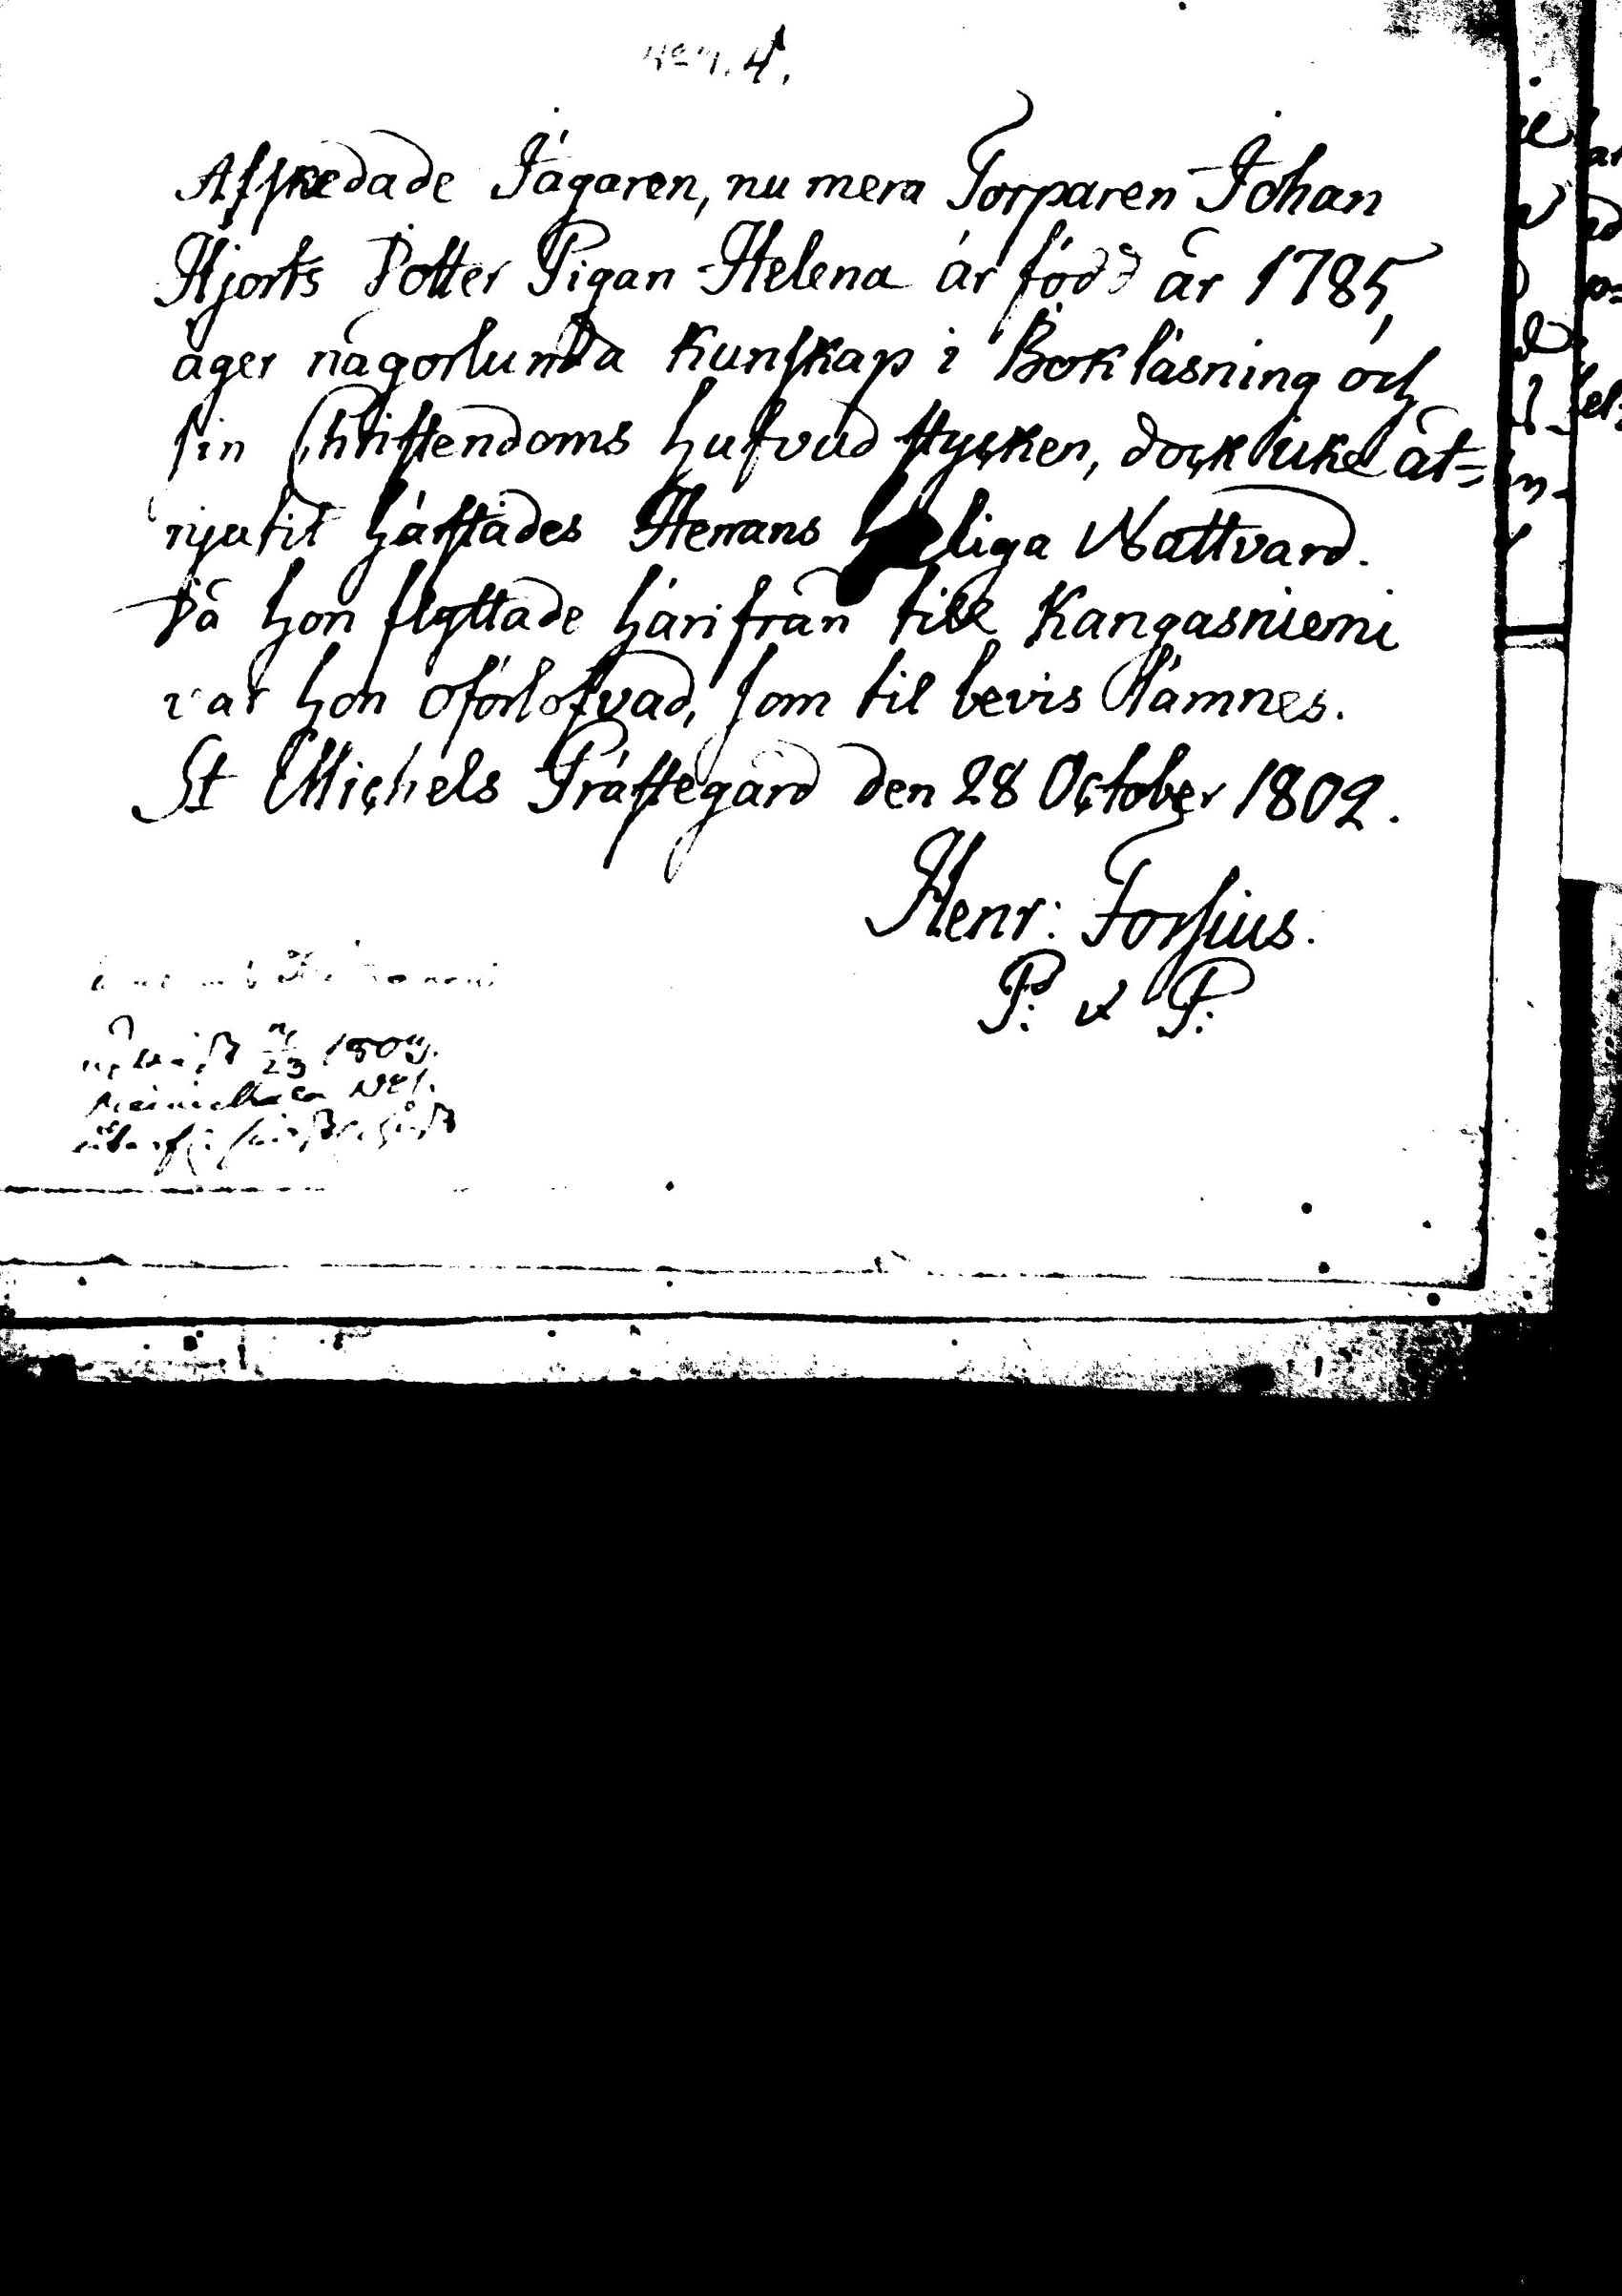 4.
Afskedade Jägaren, nu mera Torparen Johan
Hjorts Dotter Pigan Helena är född år 1785,
äger någorlunda kunskap i Bokläsning och
sin Christendoms hufvud stycken, dock icke åt=
njutit härstädes Herrans heliga Nattvard.
Då hon flyttade härifrån till Kangasniemi
var hon oförlofvad, som til bevis lämnes.
St Michels Prästegård den 28 October 1802.
Henr: Forsius.
P: & P: